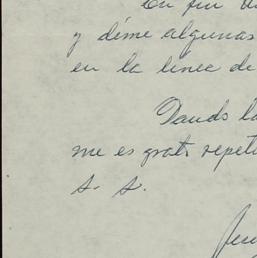 En fin de
y dime algunas
en la linee de
Dando la
me es grato repeti
s. s.